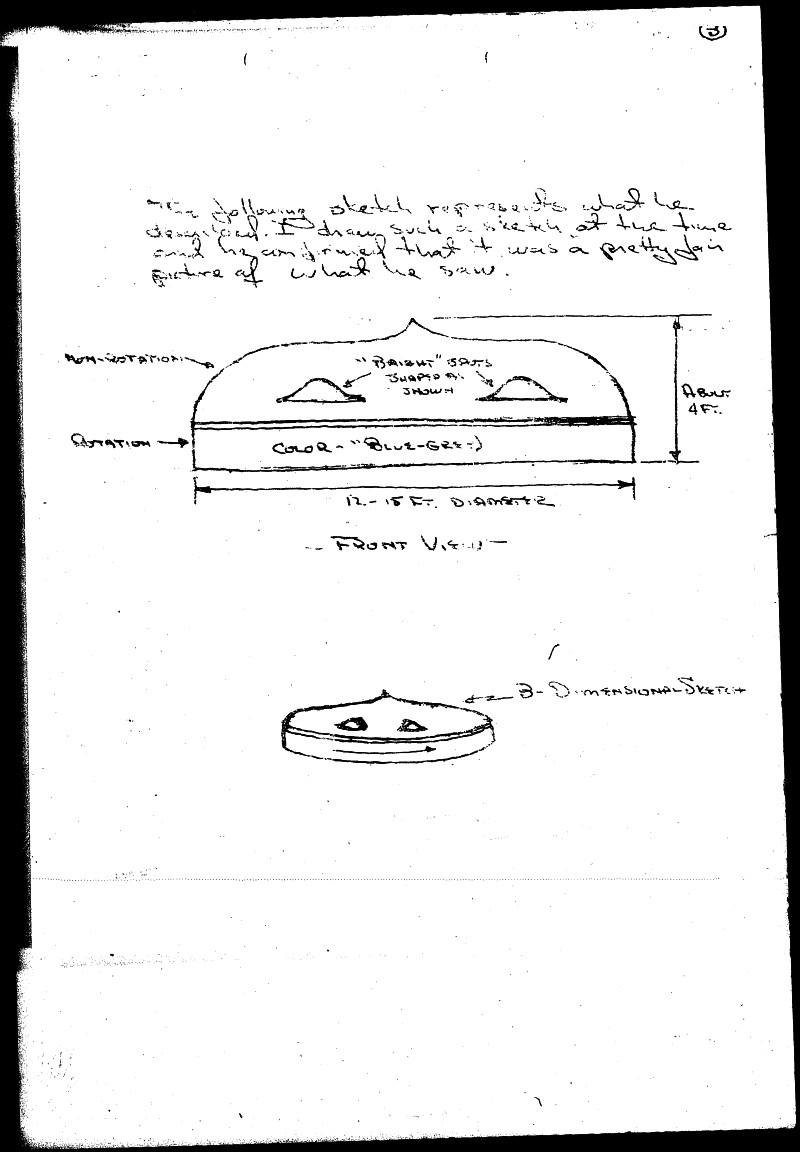 3
The following sketch represents what he
described. I draw such a sketch at the time
and he confirmed that it was a pretty fair
picture of what he saw.
NON-ROTATION
"BRIGHT" SPOTS
SHAPED AS
SHOWN
ABOUT
4 FT.
ROTATION
COLOR - "BLUE-GREY"
12 - 15 FT. DIAMETER
- FRONT VIEW -
3-DIMENSIONAL SKETCH